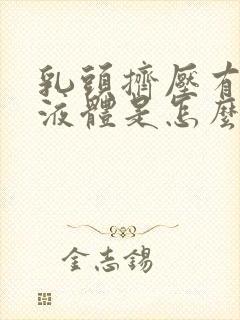 乳頭擠壓有
液體是怎麼
金志錫